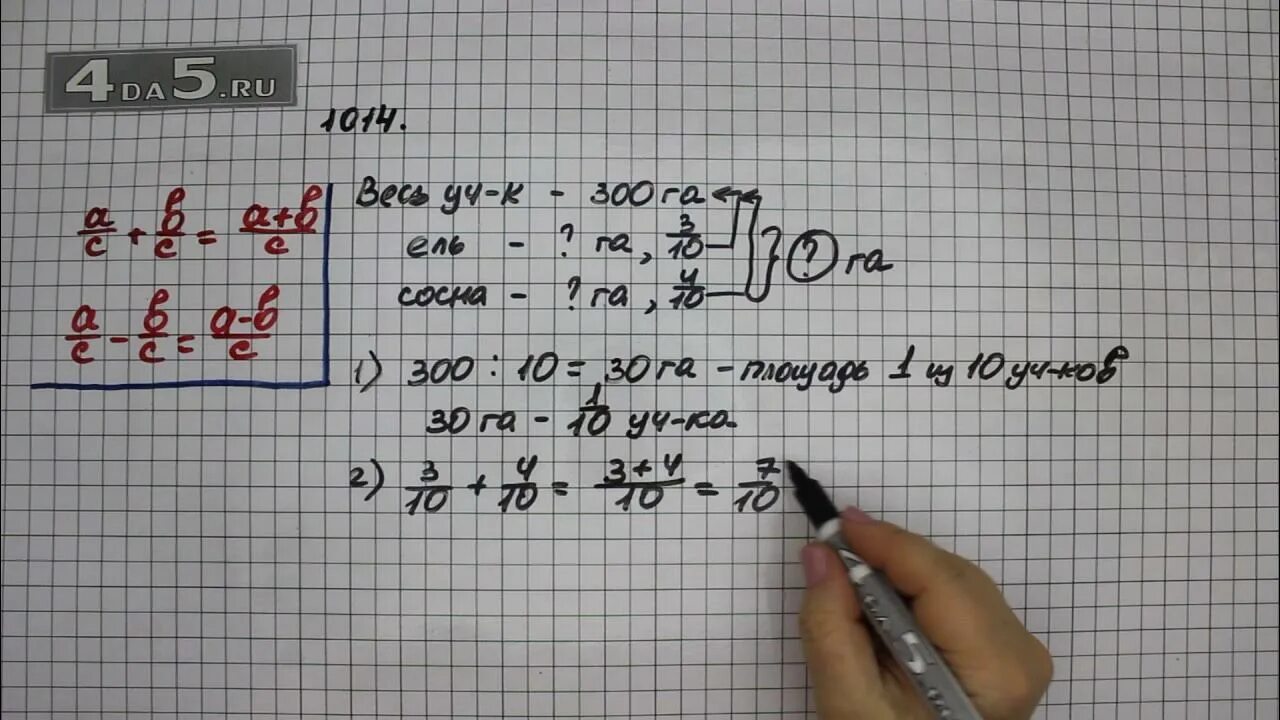 4DA5.RU
1014.
a/c + b/c = a+b/c
a/c - b/c = a-b/c
Весь уч-к - 300 га
ель - ? га, 3/10
сосна - ? га, 4/10
? га
1) 300 : 10 = 30 га - площадь 1 из 10 уч-ков
30 га - 1/10 уч-ка
2) 3/10 + 4/10 = 3+4/10 = 7/10
4DA5